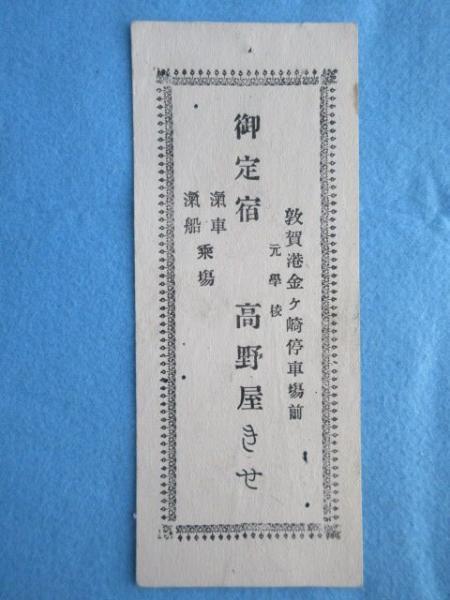 敦賀港金ヶ崎停車場前
元學校
御定宿 高野屋きせ
滊車
滊船 乘場